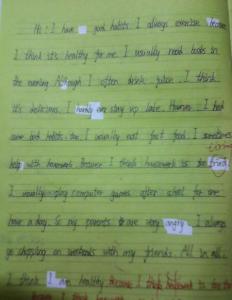 Hi! I have good habits. I always exercise because
I think it's healthy for me. I usually read books in
the morning. Although I often drink juice. I think
it's delicious. I hardly ever stay up late. However, I had
some bad habits, too. I usually eat fast food. I sometimes
help with housework. Because I think housework is
I usually play computer games after school for one
have a day. So my parents are very angry. I always
go shopping on weekends with my friends. All in all, I
think I healthy. Because I